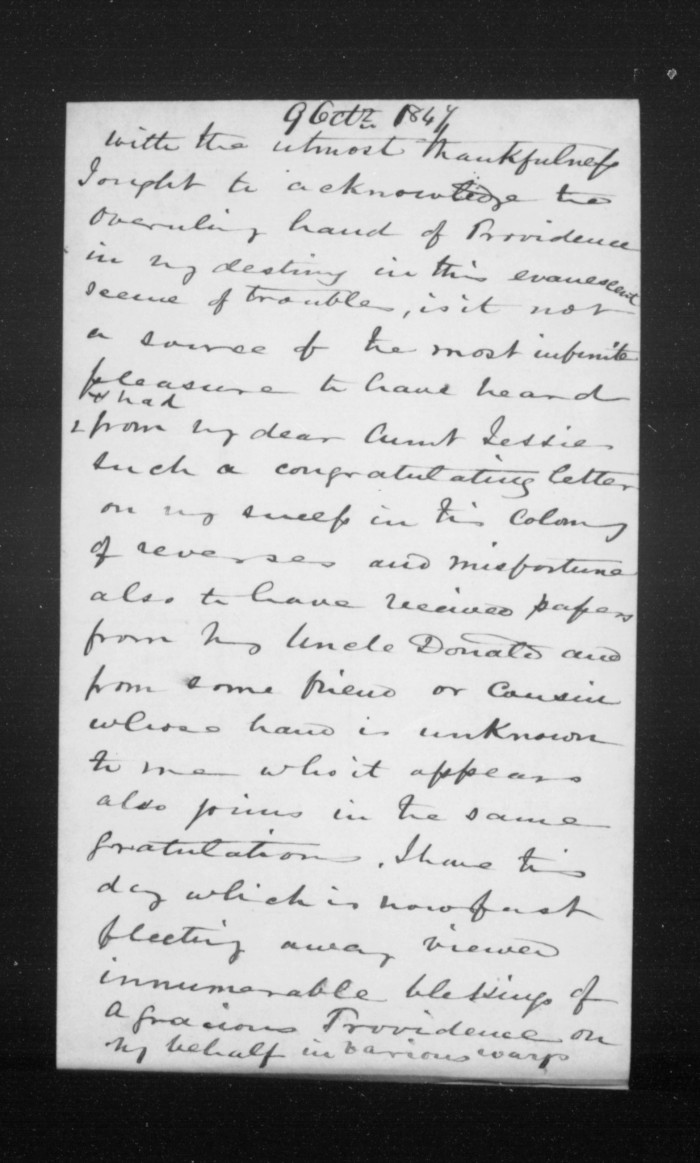 9 Octr. 1847
with the utmost thankfulness
I ought to acknowledge the
overruling hand of Providence
in my destiny in this evanescent
scene of troubles, is it not
a source of the most infinite
pleasure to have heard
& had
from my dear Aunt Jessie
such a congratulating letter
on my success in this Colony
of reverses and misfortune
also to have received papers
from my Uncle Donald and
from some friend or Cousin
whose hand is unknown
to me who it appears
also joins in the same
gratulations. I have this
day which is now fast
fleeting away viewed
innumerable blessings of
a gracious Providence on
my behalf in various ways